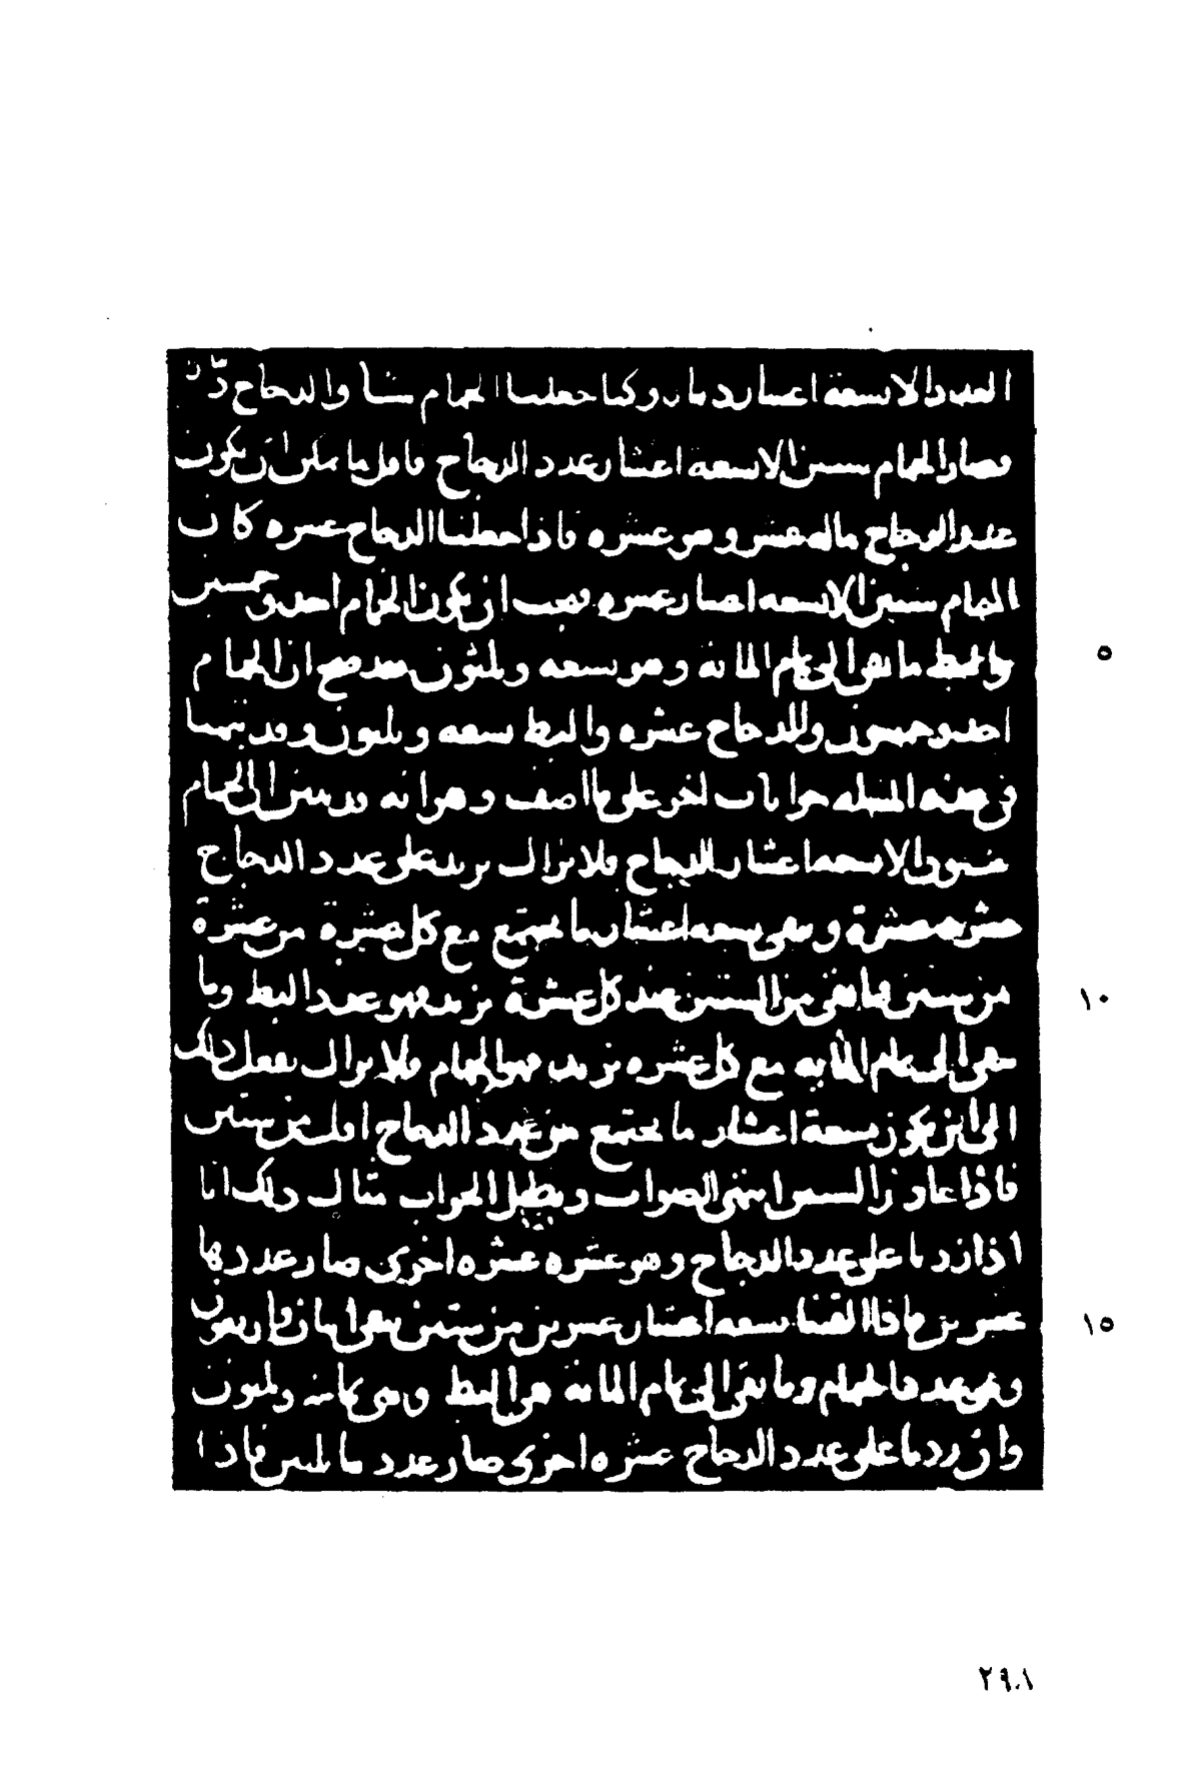 العدد الا تسعة اعشار دينار وكنا جعلنا الحمام شيئا والدجاج دينارا
فصار الحمام ستين الا تسعة اعشار عدد الدجاج فاقل ما يمكن ان يكون
عدد الدجاج ماله عشر وهو عشره فاذا جعلنا الدجاج عشره كان
الحمام ستين الا تسعه اعشار عشره فيجب ان يكون الحمام احد وخمسين
والبط ما بقى الى تمام المائة وهو تسعه وثلثون فقد صح ان الحمام
احد وخمسون والدجاج عشره والبط تسعه وثلثون وقد يتهيا
فى هذه المسله جوابات اخر على ما اصف وهو انه قد تبين ان الحمام
ستون الا تسعة اعشار الدجاج فلا يزال يزيد على عدد الدجاج
عشرة عشرة ويلقى تسعه اعشار ما يجتمع مع كل عشرة من عشرة
من ستين فما بقى من الستين عند كل عشرة يزيد فهو عدد البط وما
بقى الى تمام المائه مع كل عشره يزيد فهو الحمام ولا يزال يفعل ذلك
الى ان يكون تسعة اعشار ما يجتمع من عدد الدجاج اقل من ستين
فاذا جاوز الستين انتهى الصواب وبطل الجواب مثال ذلك انا
اذا زدنا على عدد الدجاج وهو عشره عشره اخرى صار عددها
عشرين فاذا القينا تسعه اعشار عشرين من ستين بقى اثنان واربعون
وهى عدد الحمام وما بقى الى تمام المائة هو البط وهى ثمانية وثلثون
وان زدنا على عدد الدجاج عشره اخرى صار عددها ثلثين فاذا
٥
١٠
١٥
٢٩٠١